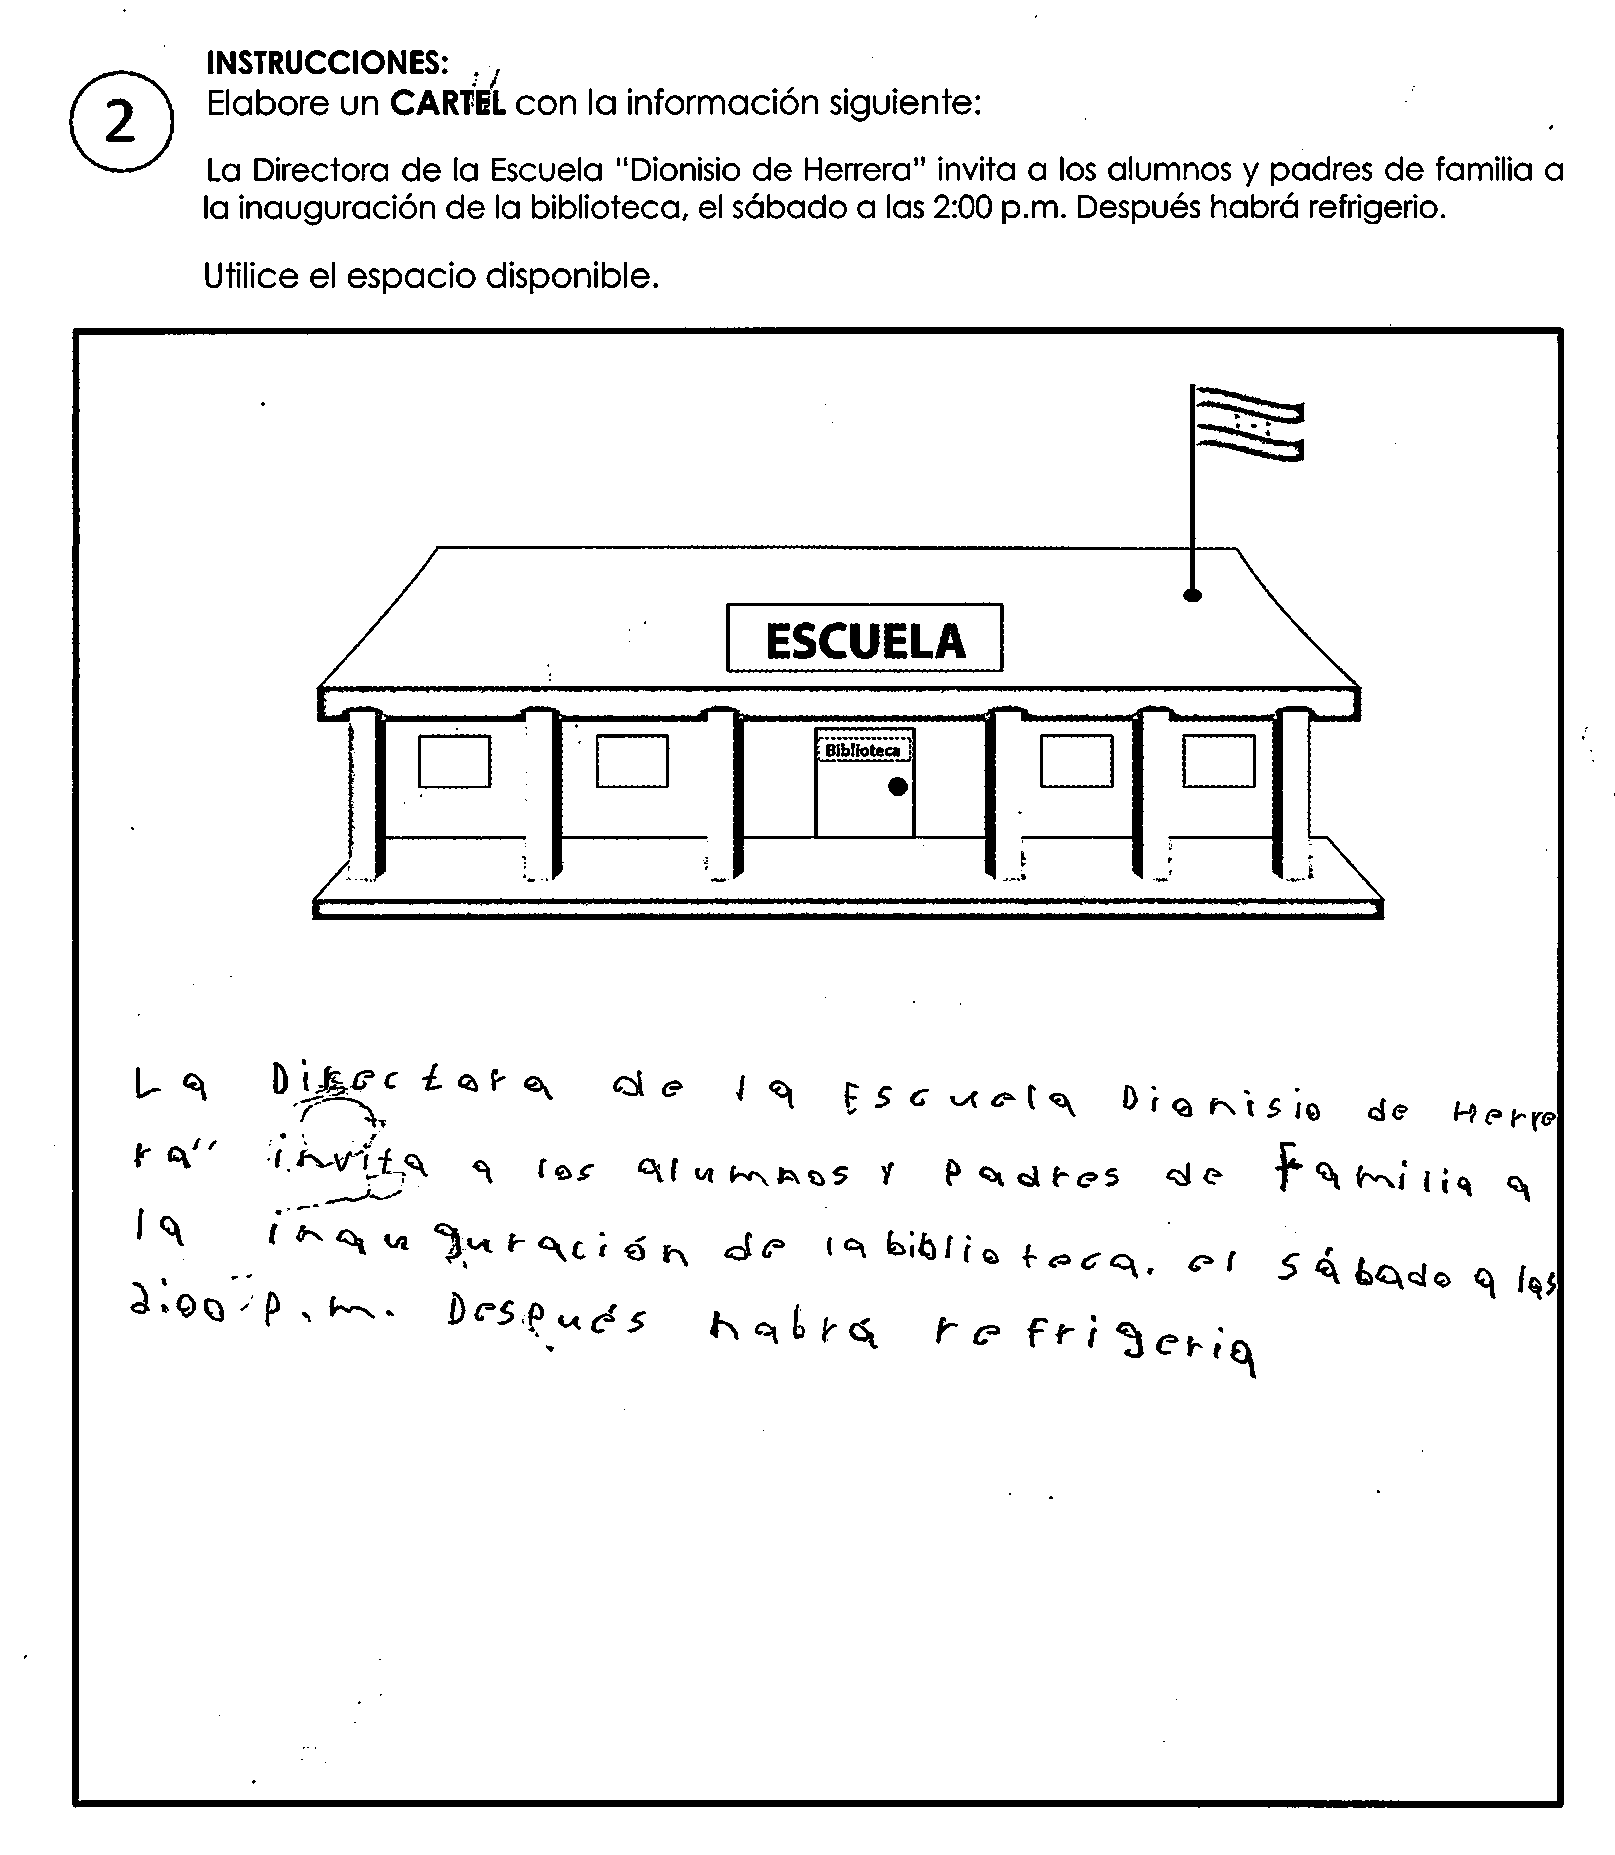 INSTRUCCIONES:
2
Elabore un CARTEL con la información siguiente:
La Directora de la Escuela "Dionisio de Herrera" invita a los alumnos y padres de familia a
la inauguración de la biblioteca, el sábado a las 2:00 p.m. Después habrá refrigerio.
Utilice el espacio disponible.
ESCUELA
Biblioteca
La Directora de la Escuela Dionisio de Herre
ra" invita a los alumnos y padres de Familia a
la inauguración de la biblioteca. el sábado a las
2:00 p.m. Después habrá refrigeria